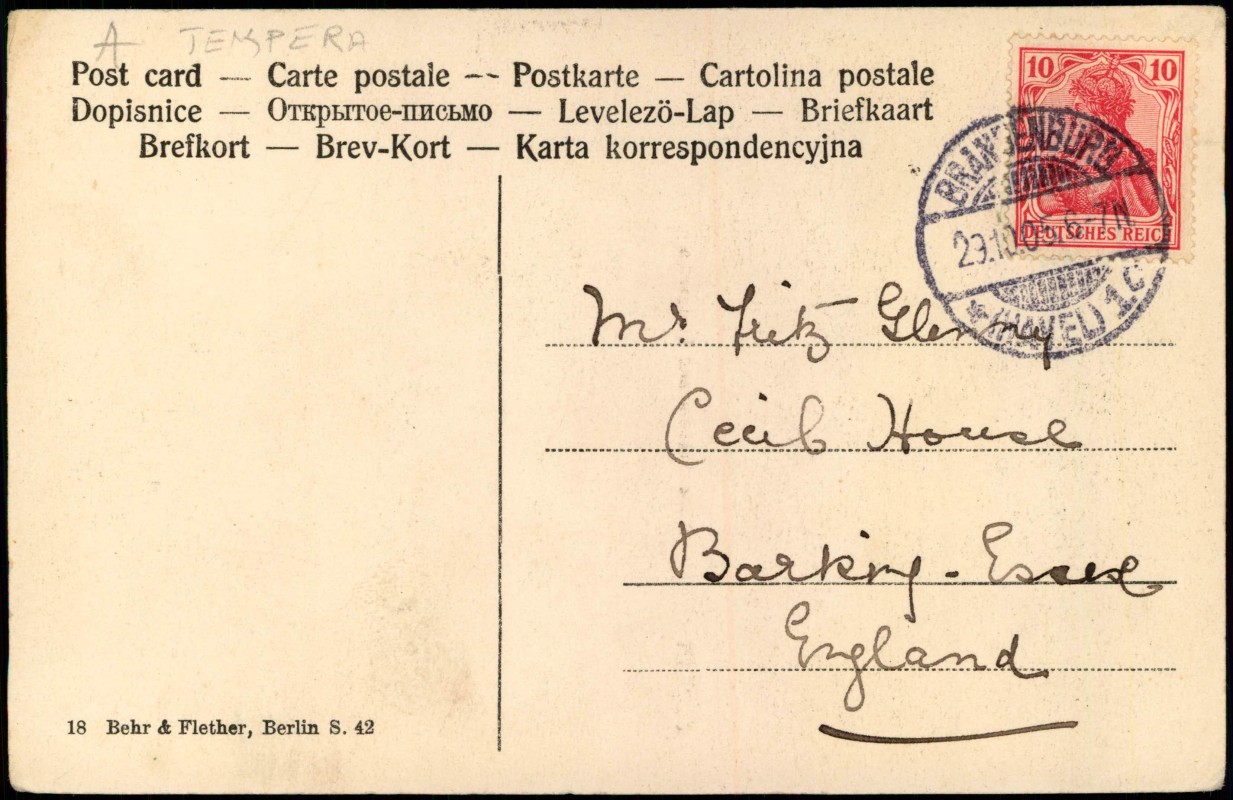 A TEMPERA
Post card — Carte postale -- Postkarte — Cartolina postale
Dopisnice — Открытое-письмо — Levelezö-Lap — Briefkaart
Brefkort — Brev-Kort — Karta korrespondencyjna
10 10
DEUTSCHES REICH
BRANDENBURG
29.10.05. 6-7N.
* (HAVEL) 1C
Mr. Fritz Glenny
Cecil House
Barking - Essex
England
18 Behr & Flether, Berlin S. 42